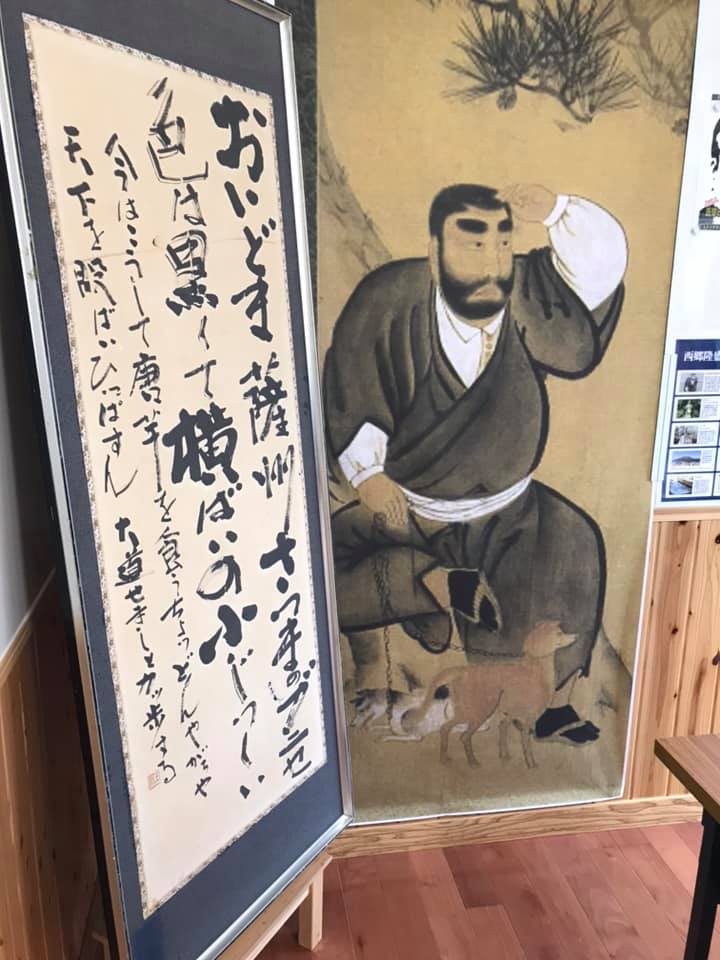 おいどま薩州さつまのブニセ
色は黒くて横ばいの小じっくい
今はこうして唐芋を食うちょっどんやがちや
天下を股ばいひっぱすん 大道せましとカッ歩する
西郷隆